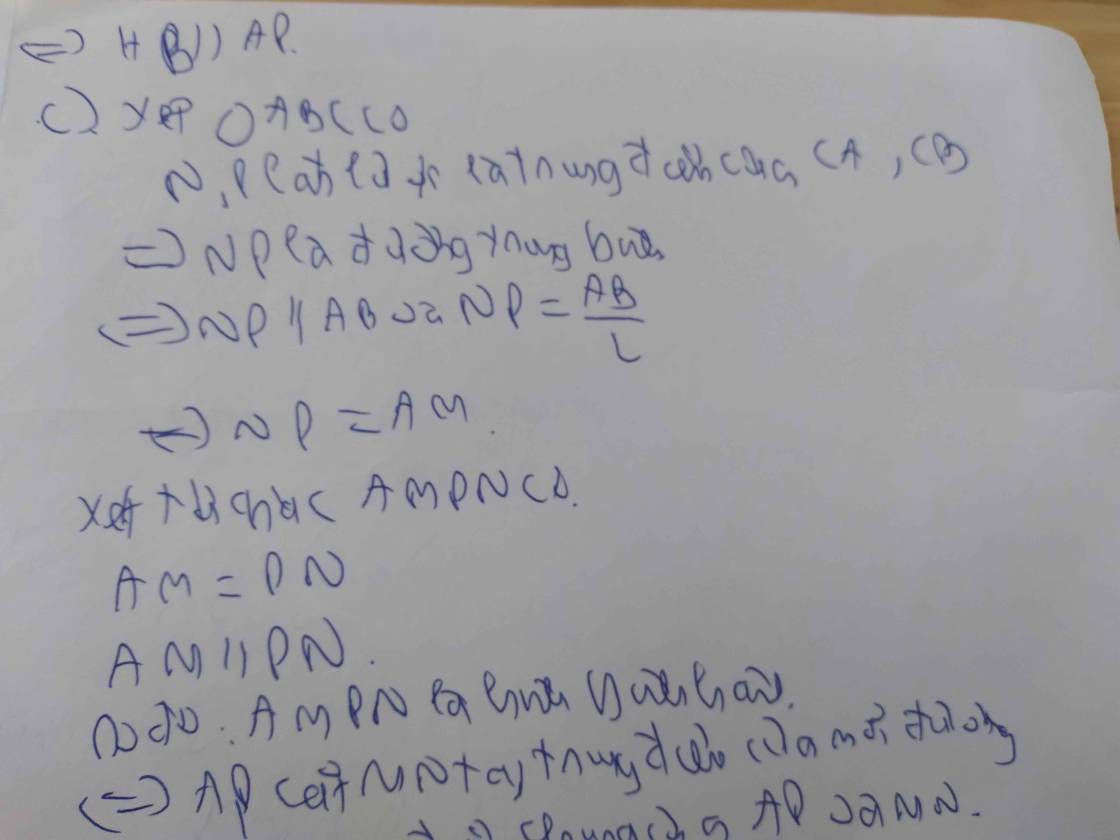 <=> HB // AP.
c) Xét △ABC có
N, P lần lượt là trung điểm của CA, CB
=> NP là đường trung bình
<=> NP // AB và NP = AB/2
<=> NP = AM.
Xét tứ giác AMPN có.
AM = PN
AM // PN.
Do đó: AMPN là hình bình hành.
<=> AP cắt MN tại trung điểm của mỗi đường
của AP và MN.